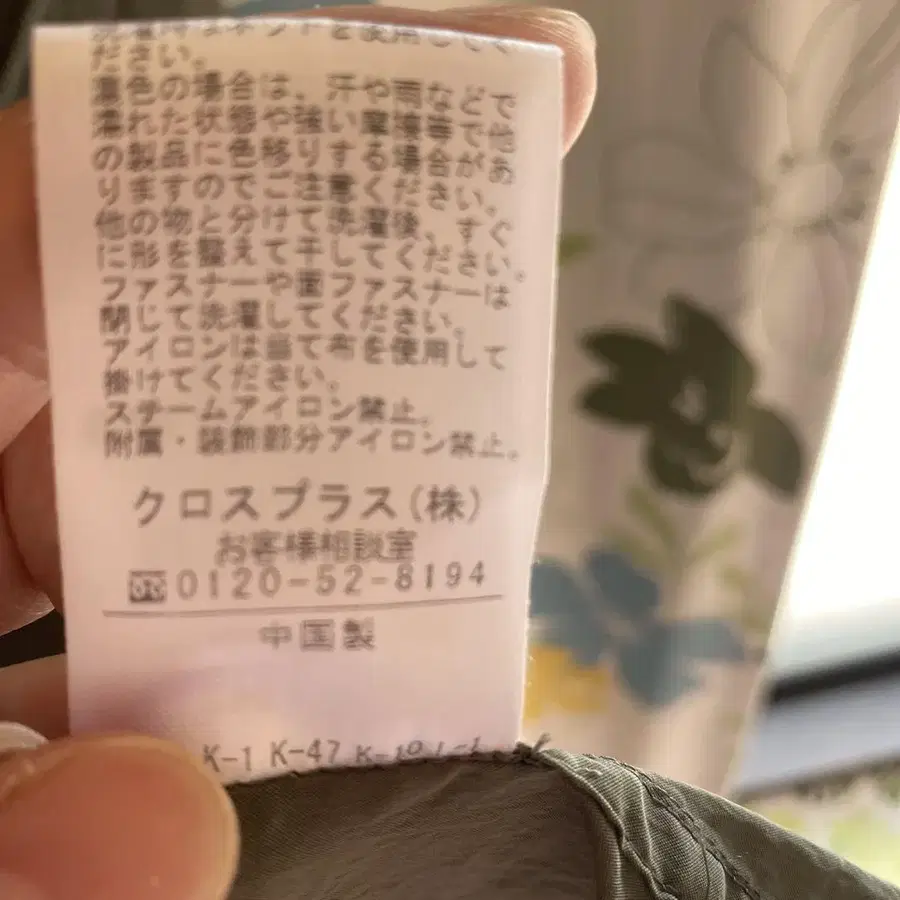 ネットを使用してく
ださい。
濃色の場合は、汗や雨などで
濡れた状態や強い摩擦等で他
の製品に色移りする場合があ
りますのでご注意ください。
他の物と分けて洗濯後、すぐ
に形を整えて干してください。
ファスナーや面ファスナーは
閉じて洗濯してください。
アイロンは当て布を使用して
掛けてください。
スチームアイロン禁止。
附属・装飾部分アイロン禁止。
クロスプラス(株)
お客様相談室
0120-52-8194
中国製
K-1 K-47